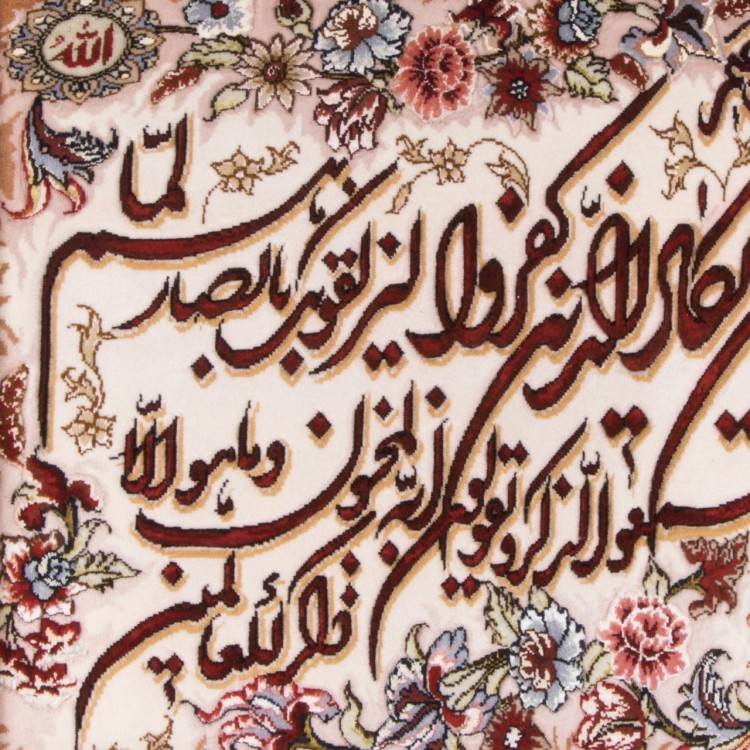 الله
يكاد الذين كفروا ليزلقونك بابصارهم لما
سمعوا الذكر ويقولون انه لمجنون وما هو الا
ذكر للعالمين